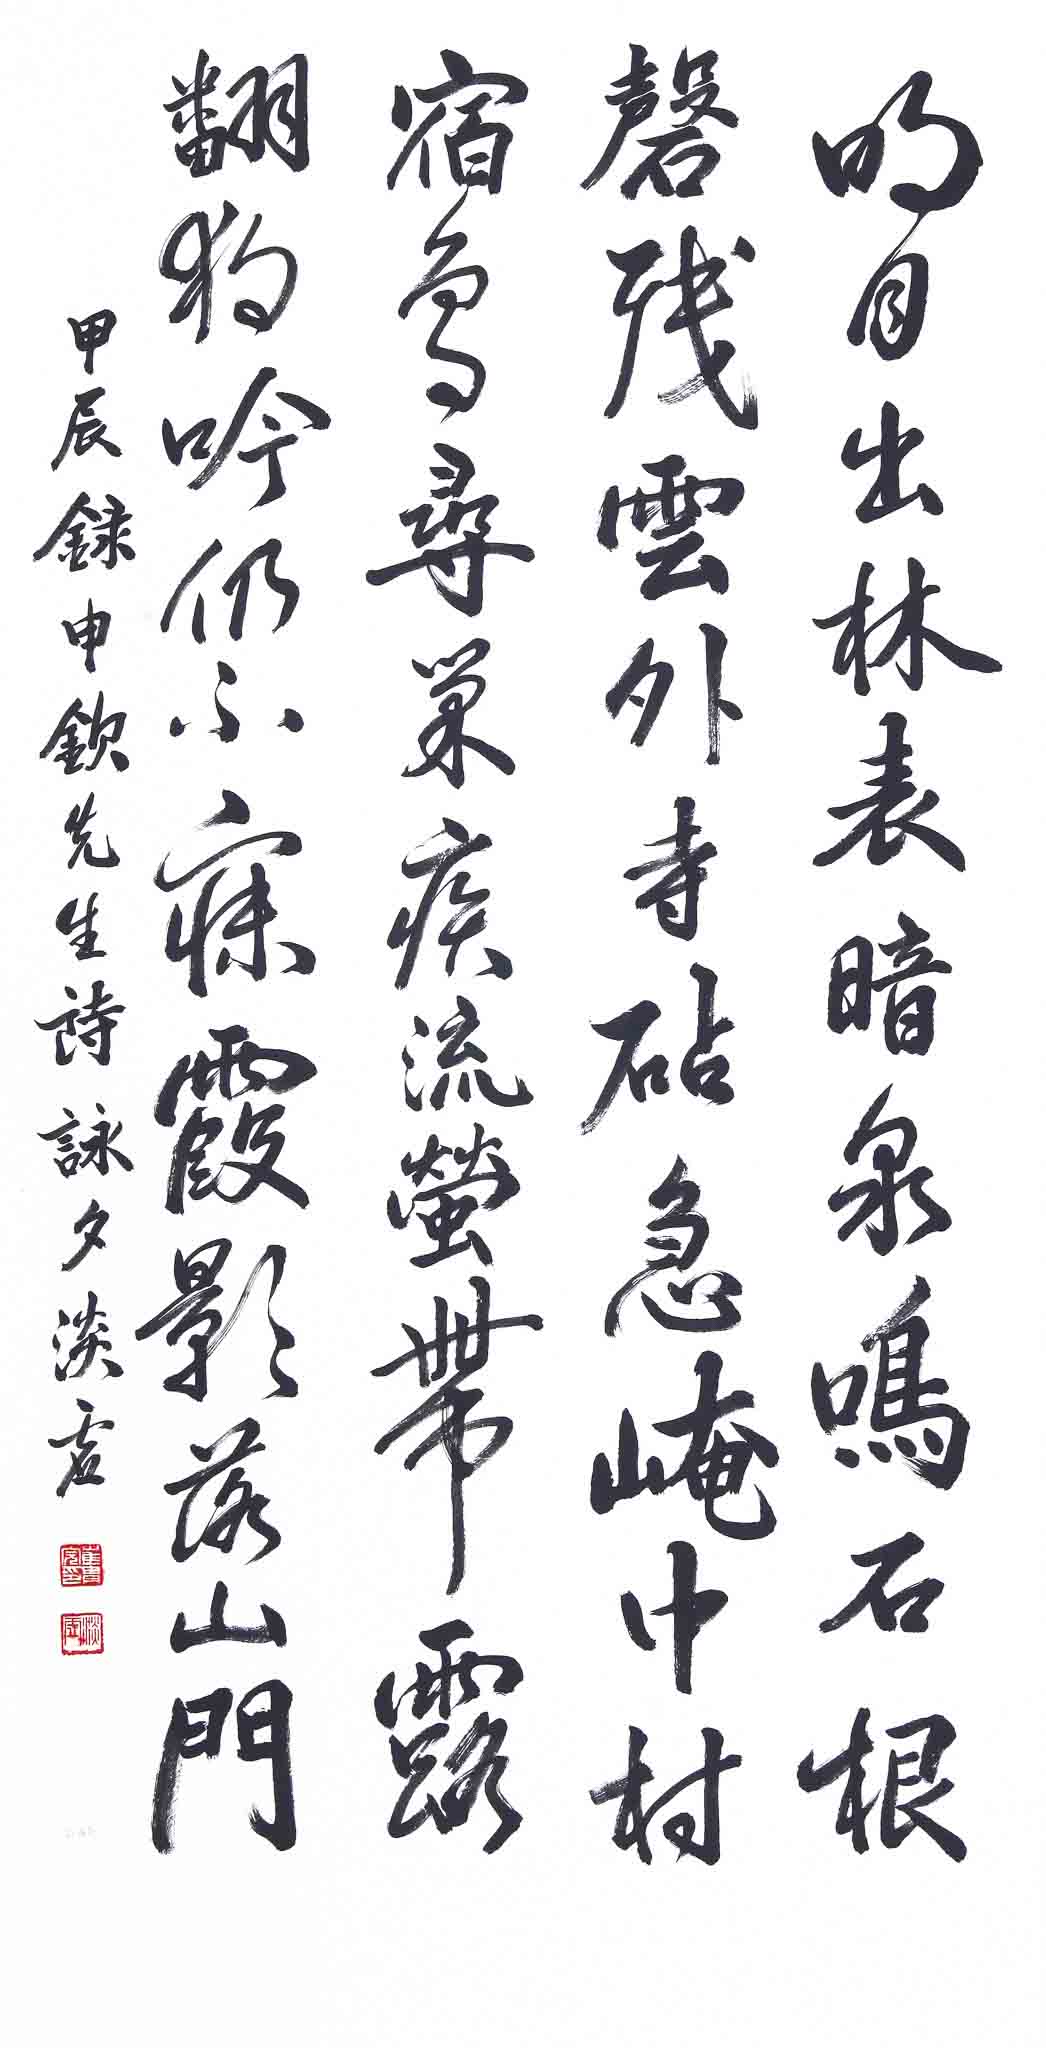 明月出林表暗泉鳴石根
磬残雲外寺砧急崦中村
宿鳥尋巢疾流螢帶露
翻狗吟仍不寐霞影落山門
甲辰錄申欽先生詩詠夕淡虛